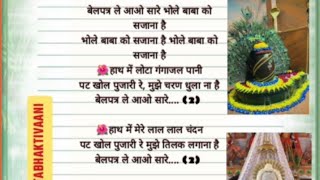 बेलपत्र ले आओ सारे भोले बाबा को
सजाना है
भोले बाबा को सजाना है भोले बाबा को
सजाना है
🌺हाथ में लोटा गंगाजल पानी
पट खोल पुजारी रे, मुझे चरण धुला ना है
बेलपत्र ले आओ सारे.... (2)
🌺हाथ में मेरे लाल लाल चंदन
पट खोल पुजारी रे मुझे तिलक लगाना है
बेलपत्र ले आओ सारे.... (2)
ABHAKTIVAANI